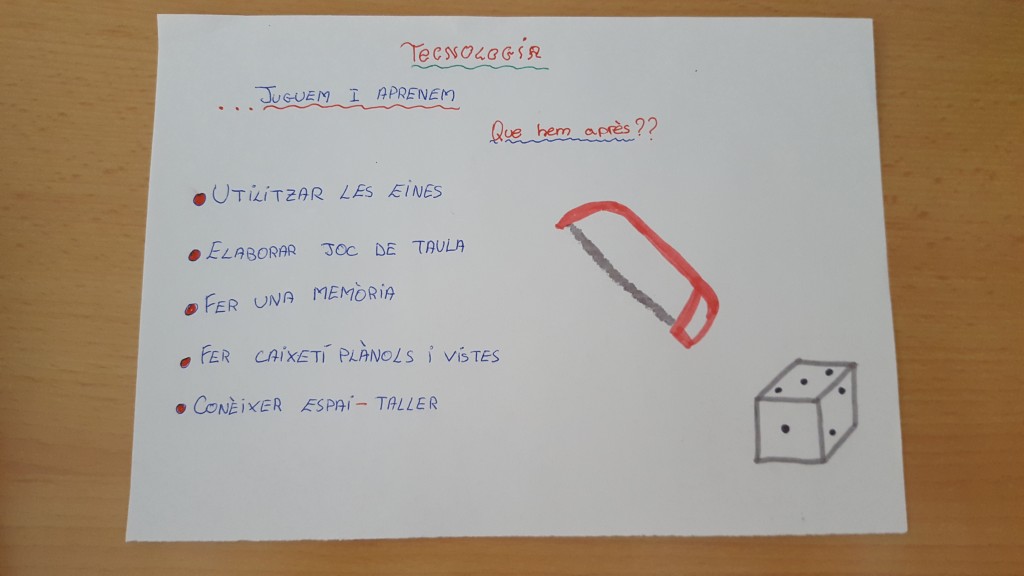 TECNOLOGIA
... JUGUEM I APRENEM
Que hem après??
UTILITZAR LES EINES
ELABORAR JOC DE TAULA
FER UNA MEMÒRIA
FER CAIXETÍ PLÀNOLS I VISTES
CONÈIXER ESPAI-TALLER